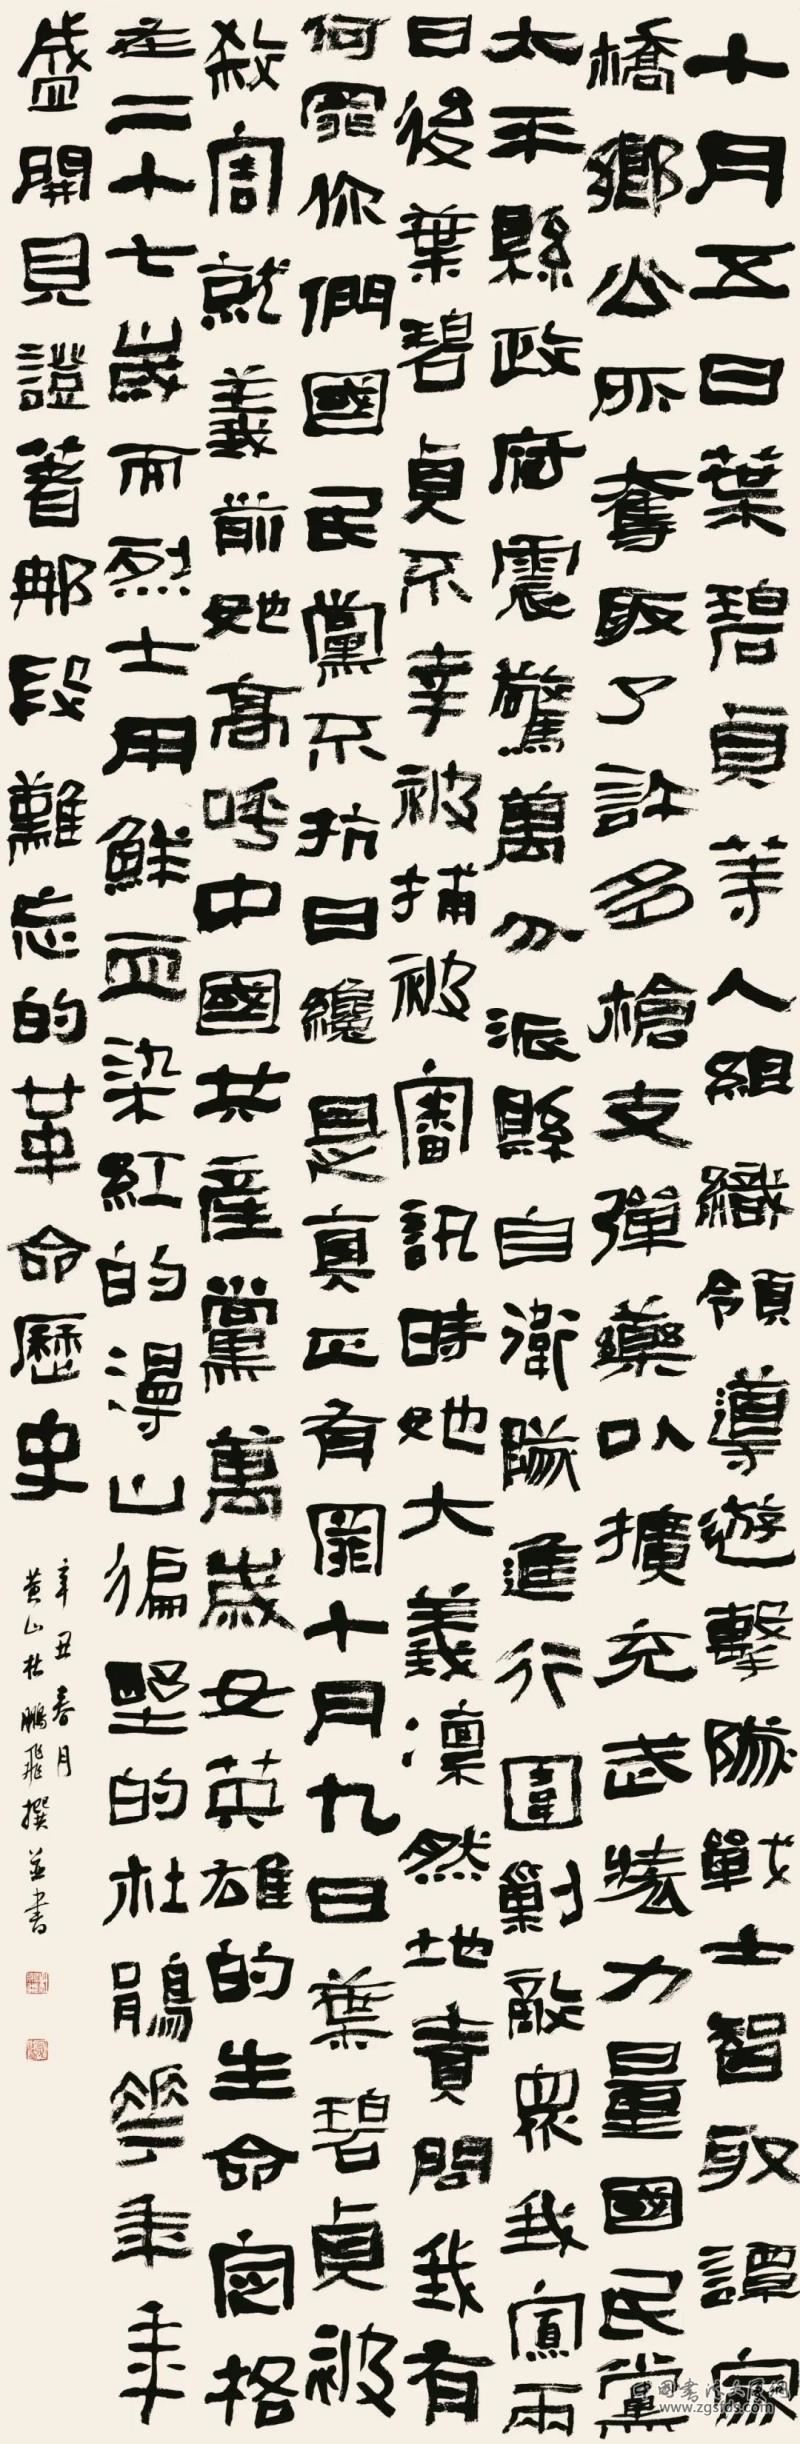 十月五日葉碧貞等人組織領導遊擊隊戰士智取譚家
橋鄉公所奪取了許多槍支彈藥以擴充武裝力量國民黨
太平縣政府震驚萬分派縣自衛隊進行圍剿敵眾我寡兩
日後葉碧貞不幸被捕被審訊時她大義凜然地責問我有
何罪你們國民黨不抗日纔是真正有罪十月九日葉碧貞被
殺害就義前她高呼中國共產黨萬歲女英雄的生命定格
在二十七歲而烈士用鮮血染紅的漫山徧野的杜鵑花年年
盛開見證著那段難忘的革命歷史
辛丑春月
黃山杜鵬飛撰並書
www.zgsfds.com